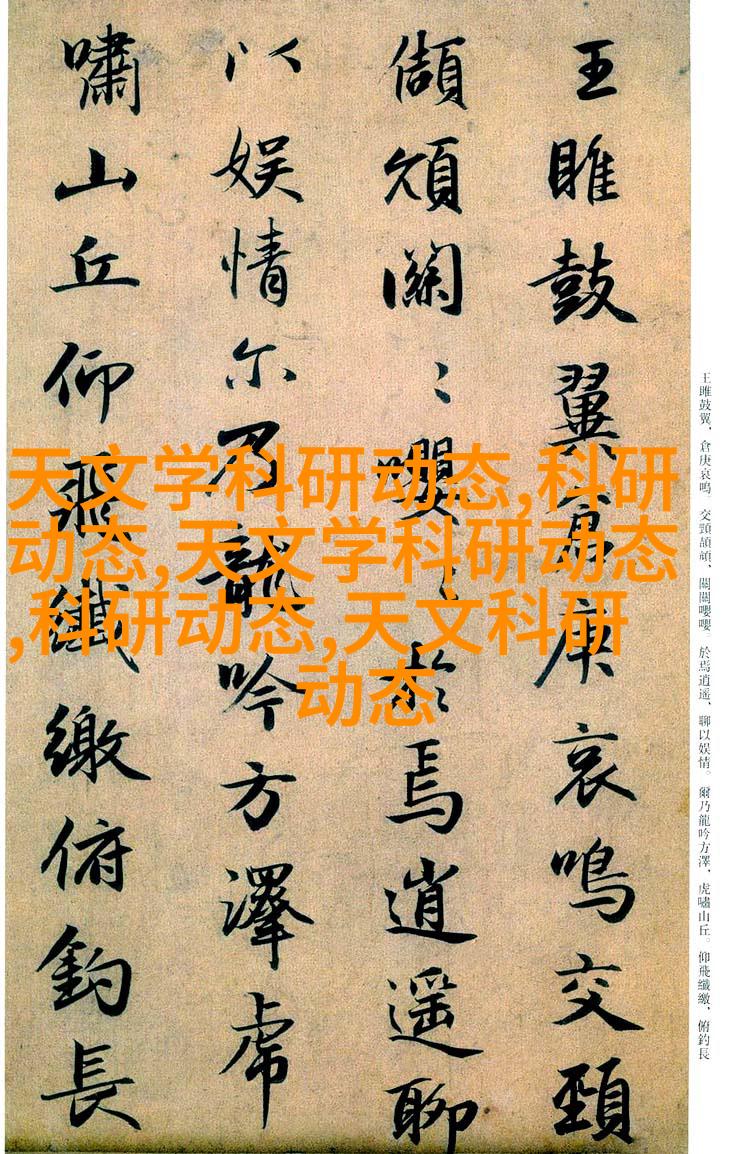 王雎鼓翼倉庚哀鳴交頸
頡頏關〻嚶〻於焉逍遥聊
以娱情尔乃龍吟方澤虎
嘯山丘仰飛纖繳俯釣長
王雎鼓翼、倉庚哀鳴。交頸頡頏、關關嚶嚶。於焉逍遥、聊以娱情。爾乃龍吟方澤、虎嘯山丘。仰飛纖繳、俯釣長
天文学科研动态,科研
动态,天文学科研动态
,科研动态,天文科研
动态